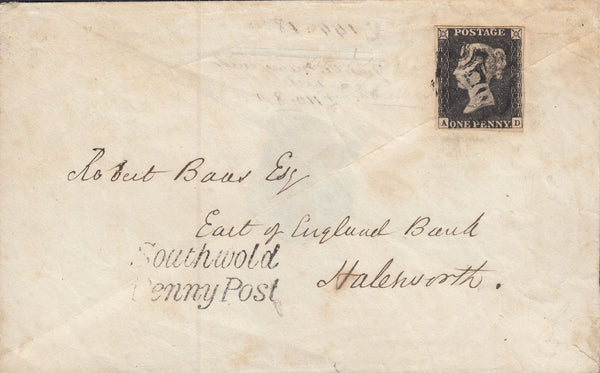 POSTAGE
A D
ONE PENNY
Robert Baas Esq
East of England Bank
Southwold
Penny Post
Halesworth.